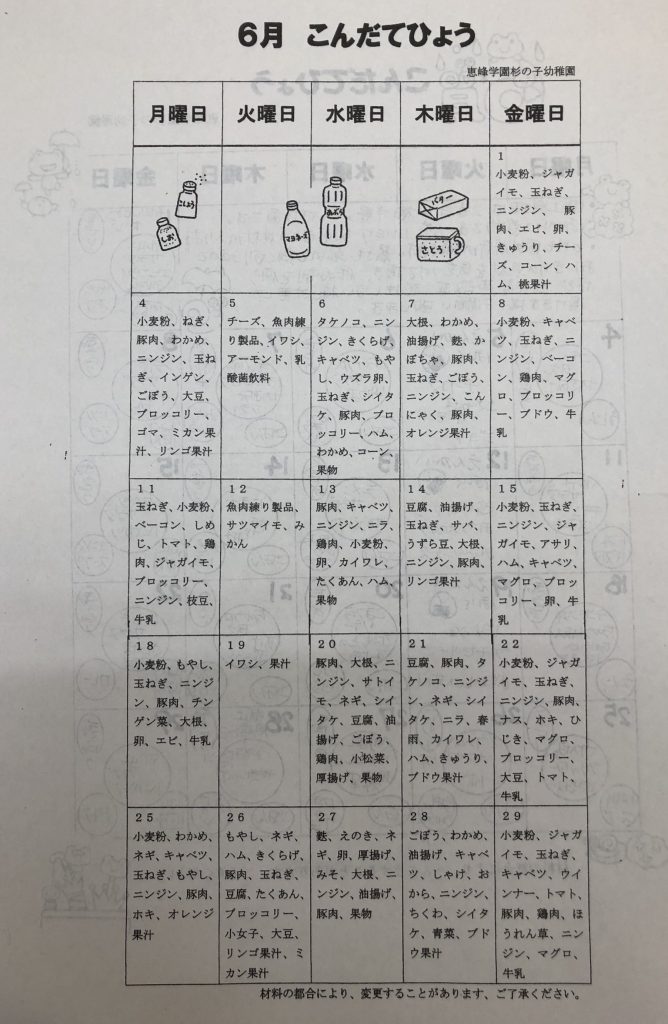 6月 こんだてひょう
恵峰学園杉の子幼稚園
月曜日 火曜日 水曜日 木曜日 金曜日
こしょう
しお
マヨネーズ
あぶら
バター
さとう
1
小麦粉、ジャガ
イモ、玉ねぎ、
ニンジン、 豚
肉、エビ、卵、
きゅうり、チー
ズ、コーン、ハ
ム、桃果汁
4
小麦粉、ねぎ、
豚肉、わかめ、
ニンジン、玉ね
ぎ、インゲン、
ごぼう、大豆、
ブロッコリー、
ゴマ、ミカン果
汁、リンゴ果汁
5
チーズ、魚肉練
り製品、イワシ、
アーモンド、乳
酸菌飲料
6
タケノコ、ニン
ジン、きくらげ、
キャベツ、もや
し、ウズラ卵、
玉ねぎ、シイタ
ケ、豚肉、ブロ
ッコリー、ハム、
わかめ、コーン、
果物
7
大根、わかめ、
油揚げ、麩、か
ぼちゃ、豚肉、
玉ねぎ、ごぼう、
ニンジン、こん
にゃく、豚肉、
オレンジ果汁
8
小麦粉、キャベ
ツ、玉ねぎ、ニ
ンジン、ベーコ
ン、鶏肉、マグ
ロ、ブロッコリ
ー、ブドウ、牛
乳
11
玉ねぎ、小麦粉、
ベーコン、しめ
じ、トマト、鶏
肉、ジャガイモ、
ブロッコリー、
ニンジン、枝豆、
牛乳
12
魚肉練り製品、
サツマイモ、み
かん
13
豚肉、キャベツ、
ニンジン、ニラ、
鶏肉、小麦粉、
卵、カイワレ、
たくあん、ハム、
果物
14
豆腐、油揚げ、
玉ねぎ、サバ、
うずら豆、大根、
ニンジン、豚肉、
リンゴ果汁
15
小麦粉、玉ねぎ、
ニンジン、ジャ
ガイモ、アサリ、
ハム、キャベツ、
マグロ、ブロッ
コリー、卵、牛
乳
18
小麦粉、もやし、
玉ねぎ、ニンジ
ン、豚肉、チン
ゲン菜、大根、
卵、エビ、牛乳
19
イワシ、果汁
20
豚肉、大根、ニ
ンジン、サトイ
モ、ネギ、シイ
タケ、豆腐、油
揚げ、ごぼう、
鶏肉、小松菜、
厚揚げ、果物
21
豆腐、豚肉、タ
ケノコ、ニンジ
ン、ネギ、シイ
タケ、ニラ、春
雨、カイワレ、
ハム、きゅうり、
ブドウ果汁
22
小麦粉、ジャガ
イモ、玉ねぎ、
ニンジン、豚肉、
ナス、ホキ、ひ
じき、マグロ、
ブロッコリー、
大豆、トマト、
牛乳
25
小麦粉、わかめ、
ネギ、キャベツ、
玉ねぎ、もやし、
ニンジン、豚肉、
ホキ、オレンジ
果汁
26
もやし、ネギ、
ハム、きくらげ、
豚肉、玉ねぎ、
豆腐、たくあん、
ブロッコリー、
小女子、大豆、
リンゴ果汁、ミ
カン果汁
27
麩、えのき、ネ
ギ、卵、厚揚げ、
みそ、大根、ニ
ンジン、油揚げ、
豚肉、果物
28
ごぼう、わかめ、
油揚げ、キャベ
ツ、しゃけ、お
から、ニンジン、
ちくわ、シイタ
ケ、青菜、ブド
ウ果汁
29
小麦粉、ジャガ
イモ、玉ねぎ、
キャベツ、ウイ
ンナー、トマト、
豚肉、鶏肉、ほ
うれん草、ニン
ジン、マグロ、
牛乳
材料の都合により、変更することがあります、ご了承ください。